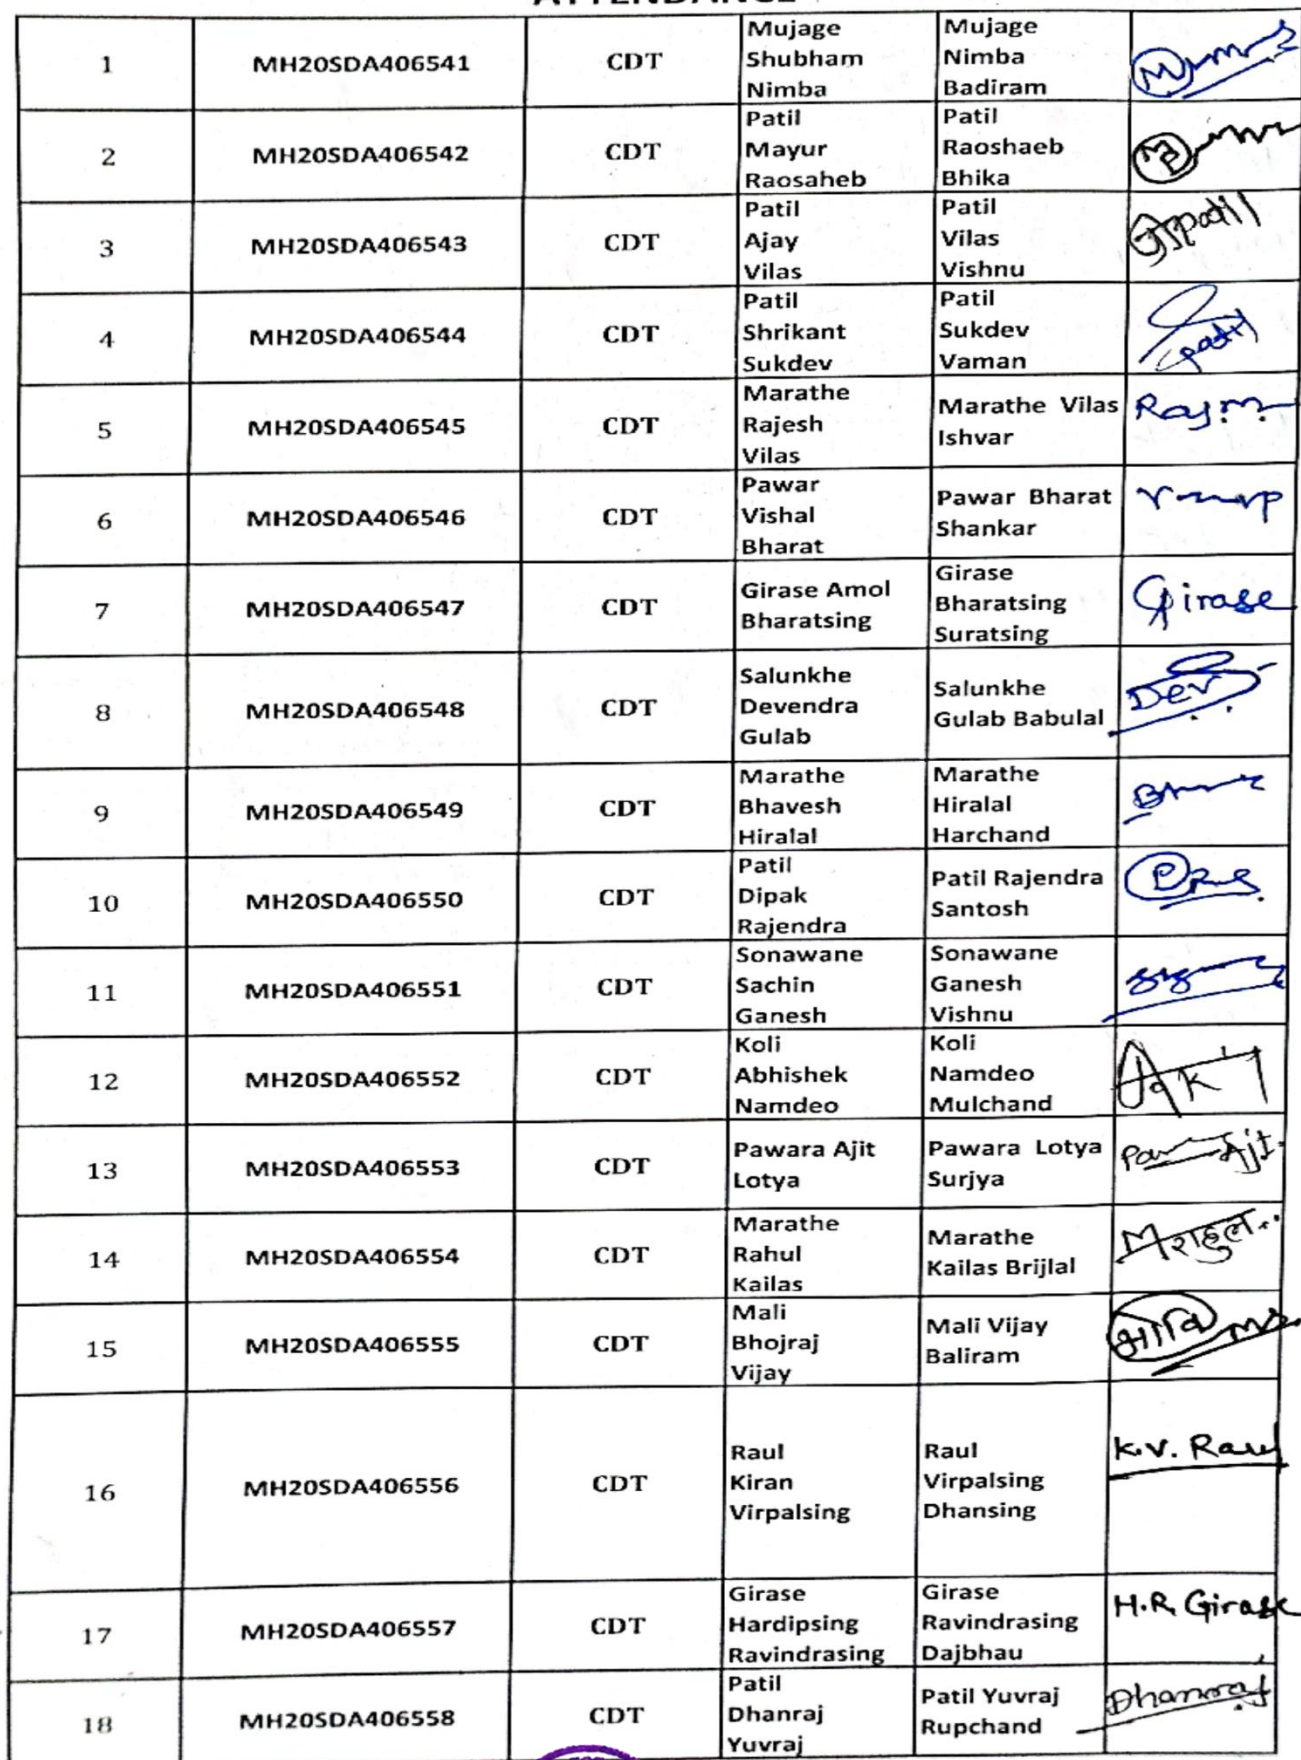 ATTENDANCE
1 MH20SDA406541 CDT Mujage Shubham Nimba Mujage Nimba Badiram
2 MH20SDA406542 CDT Patil Mayur Raosaheb Patil Raoshaeb Bhika
3 MH20SDA406543 CDT Patil Ajay Vilas Patil Vilas Vishnu
4 MH20SDA406544 CDT Patil Shrikant Sukdev Patil Sukdev Vaman
5 MH20SDA406545 CDT Marathe Rajesh Vilas Marathe Vilas Ishvar
6 MH20SDA406546 CDT Pawar Vishal Bharat Pawar Bharat Shankar
7 MH20SDA406547 CDT Girase Amol Bharatsing Girase Bharatsing Suratsing Girase
8 MH20SDA406548 CDT Salunkhe Devendra Gulab Salunkhe Gulab Babulal Dev
9 MH20SDA406549 CDT Marathe Bhavesh Hiralal Marathe Hiralal Harchand
10 MH20SDA406550 CDT Patil Dipak Rajendra Patil Rajendra Santosh
11 MH20SDA406551 CDT Sonawane Sachin Ganesh Sonawane Ganesh Vishnu
12 MH20SDA406552 CDT Koli Abhishek Namdeo Koli Namdeo Mulchand
13 MH20SDA406553 CDT Pawara Ajit Lotya Pawara Lotya Surjya Ajit
14 MH20SDA406554 CDT Marathe Rahul Kailas Marathe Kailas Brijlal Mराहुल
15 MH20SDA406555 CDT Mali Bhojraj Vijay Mali Vijay Baliram
16 MH20SDA406556 CDT Raul Kiran Virpalsing Raul Virpalsing Dhansing K.V. Raul
17 MH20SDA406557 CDT Girase Hardipsing Ravindrasing Girase Ravindrasing Dajbhau H.R. Girase
18 MH20SDA406558 CDT Patil Dhanraj Yuvraj Patil Yuvraj Rupchand Dhanraj